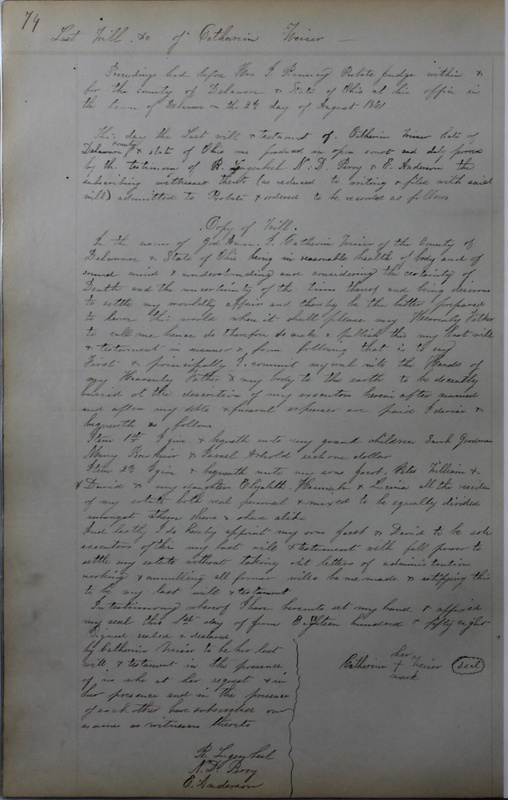 74
Last Will &c of Catharine Weiser
Proceedings had before Hon. T. Probate judge within &
for the County of Delaware & State of Ohio at his office in
the town of Delaware on the 2d day of August 1861
This day the Last will & testament of Catherine Weiser late of
Delaware county & state of Ohio was produced in open court and duly proved
by the testimony of R. Lugenbeel N. D. Perry & C. Anderson the
subscribing witnesses thereto (as reduced to writing & filed with said
will) admitted to Probate & ordered to be recorded as follows
Copy of Will.
In the name of God Amen I. Catherin Weiser of the County of
Delaware & State of Ohio being in reasonable health of body and of
sound mind & understanding and considering the certainty of
Death and the uncertainty of the time thereof and being desirous
to settle my worldly affairs and thereby be the better prepared
to leave this world when it shall please my Heavenly Father
to call me hence do therefore do make & publish this my last will
& testament in manner & form following that is to say
First & principally I commit my soul into the Hands of
my Heavenly Father & my body to the earth to be decently
buried at the discretion of my executors herein after named
and after my debts & funeral expenses are paid I devise &
bequeath as follows
Item 1st I give & bequeath unto my grand children Sarah Goodman
Mary & Israel each one dollar
Item 2d I give & bequeath unto my sons Jacob, Peter William &
David & my daughters Elizabeth Hannah & Lovina all the residue
of my estate both real personal & mixed to be equally divided
amongst them share & share alike
And lastly I do hereby appoint my sons Jacob & David to be sole
executors of this my last will & testament with full power to
settle my estate without taking out letters of administration
revoking & annulling all former wills by me made & ratifying this
to be my last will & testament
In testimony whereof I have hereunto set my hand & affixed
my seal this 1st day of June Eighteen hundred & fifty eight
Signed sealed & declared
by Catherine Weiser to be her last
will & testament in the presence
of us who at her request & in
her presence and in the presence
of each other have subscribed our
names as witnesses thereto
her
Catherine + Weiser seal
mark
R. Lugenbeel
N. D. Perry
C. Anderson